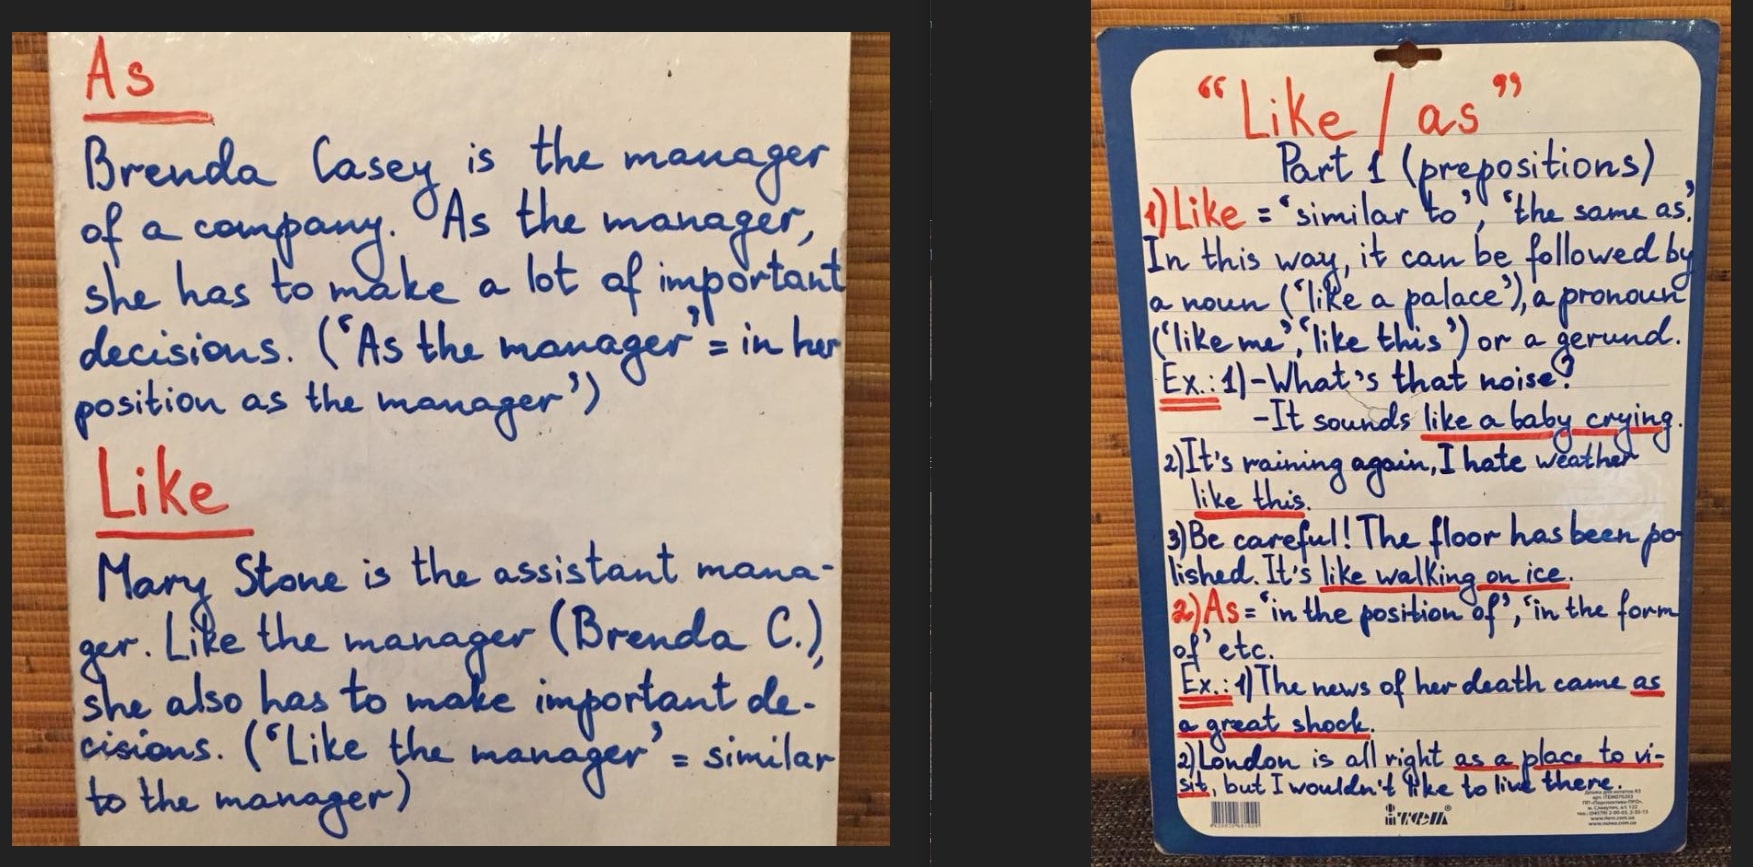 As
Brenda Casey is the manager
of a company. As the manager,
she has to make a lot of important
decisions. ('As the manager' = in her
position as the manager')
Like
Mary Stone is the assistant mana-
ger. Like the manager (Brenda C.),
she also has to make important de-
cisions. ('Like the manager' = similar
to the manager)
"Like / as"
Part 1 (prepositions)
1) Like = 'similar to', 'the same as'.
In this way, it can be followed by
a noun ('like a palace'), a pronoun
('like me', 'like this') or a gerund.
Ex.: 1) - What's that noise?
- It sounds like a baby crying.
2) It's raining again, I hate weather
like this.
3) Be careful! The floor has been po-
lished. It's like walking on ice.
2) As = 'in the position of', 'in the form
of' etc.
Ex.: 1) The news of her death came as
a great shock.
2) London is all right as a place to vi-
sit, but I wouldn't like to live there.
item®